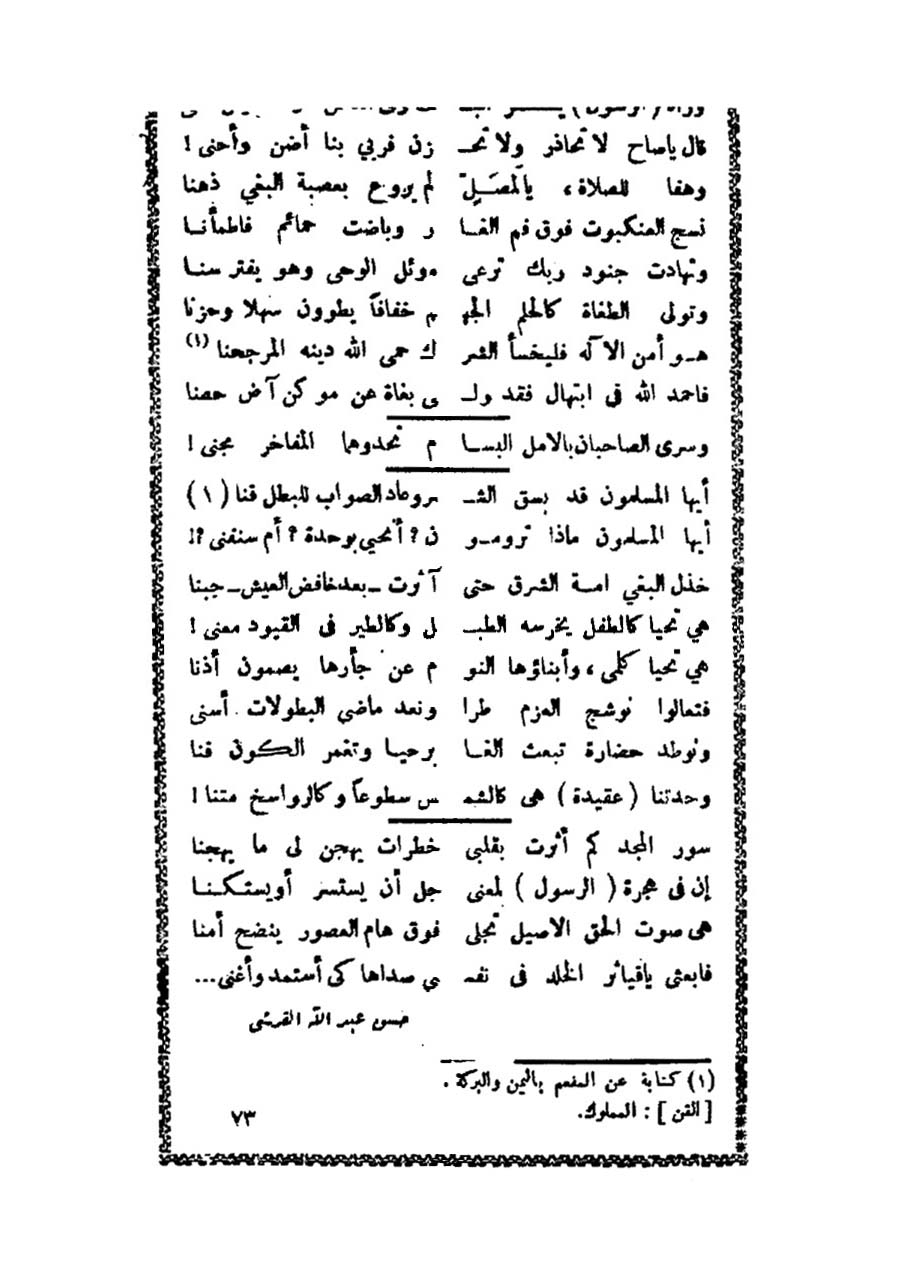 قال ياصاح لا تحاذر ولا تحـ زن فربي بنا أضن وأحنى !
وهفا للصلاة، يالمصَلٍّ لم يروع بعصبة البغي ذهنا
نسج العنكبوت فوق فم الغـا ر وباضت حمائم فاطمأنـا
وتهادت جنود ربك ترعى موئل الوحى وهو يفتر سنـا
وتولى الطغاة كالحلم الجهـ م خفافاً يطوون سهلا وحزنا
هـو أمن الآله فليخسأ الشر ك حمى الله دينه المرجحنا (١)
فاحمد الله فى ابتهال فقد ولـ ى بغاة عن موكن آض حصنا
وسرى الصاحبان بالامل البسـا م تحدوهما المفاخر مجنى !
أيها المسلمون قد بسق الشـ ـر وعاد الصواب للبطل قنا (١)
أيها المسلمون ماذا ترومـو ن ? أنحيى بوحدة ? أم سنفنى ?!
خذل البغي امـة الشرق حتى آثرت ـ بعد خافض العيش ـ جبنا
هي تحيا كالطفل يخرسه الطبـ ل وكالطير فى القيود معنى !
هي تحيا كلمى، وأبناؤها النو م عن جأرها يصمون أذنا
فتعالوا نوشج العزم طرا ونعد ماضي البطولات أسنى
ونوطد حضارة تبعث الغـا برحيـا وتغمر الكون فنا
وحدتنا (عقيدة) هى كالشمـ س سطوعاً وكالرواسخ متنا !
سور المجد كم أثرت بقلبي خطرات يهجن لى ما يهجنا
إن فى هجرة (الرسول) لمعنى جل أن يستسر أو يستكـنـا
هى صوت الحق الاصيل تجلى فوق هام العصور ينضح أمنا
فابعثى ياقياثر الخلد فى نفسـ ي صداها كى أستمد وأغنى...
حسن عبد الله القرشى
(١) كناية عن المفعم باليمن والبركة .
[القن] : المملوك.
٧٣